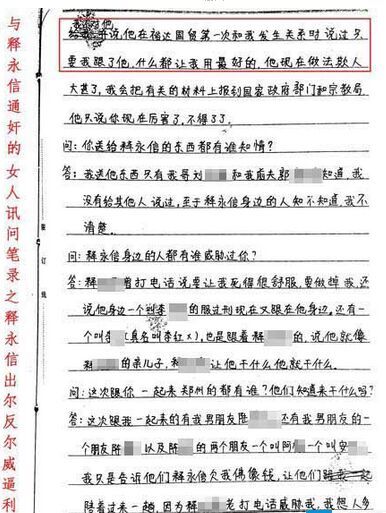 与释永信通奸的女人讯问笔录之释永信出尔反尔威逼利
说,他在裕达国贸第一次和我发生关系时说过只
要我跟了他,什么都让我用最好的,他现在做法欺人
大甚了,我会把有关的材料上报到国家政府部门和宗教局
他只说你现在厉害了,不得了。
问:你送给释永信的东西都有谁知情?
答:我送他东西只有我哥刘 和我前夫郭 知道,我
没有给其他人说过,至于释永信身边的人知不知道,我不
清楚。
问:释永信身边的人都有谁威胁过你?
答:释 曾打电话说要让我死得很舒服,要做掉我,还
说他身边一个 的服过刑现在又跟在他身边。还有一
个叫 (真名叫李红x),也是跟着释 的,说他就像
释 的亲儿子,释 让他干什么他就干什么。
问:这次跟你一起来郑州的都有谁?他们知道来干什么吗?
答:这次跟我一起来的有我男朋友陈 还有我男朋友的一
个朋友陈 以及陈 的两个朋友一个叫阿 一个叫安
我只是告诉他们释永信欠我佛像钱,让他们 一起
陪着过来一趟,因为释 老打电话威胁我,我想人多